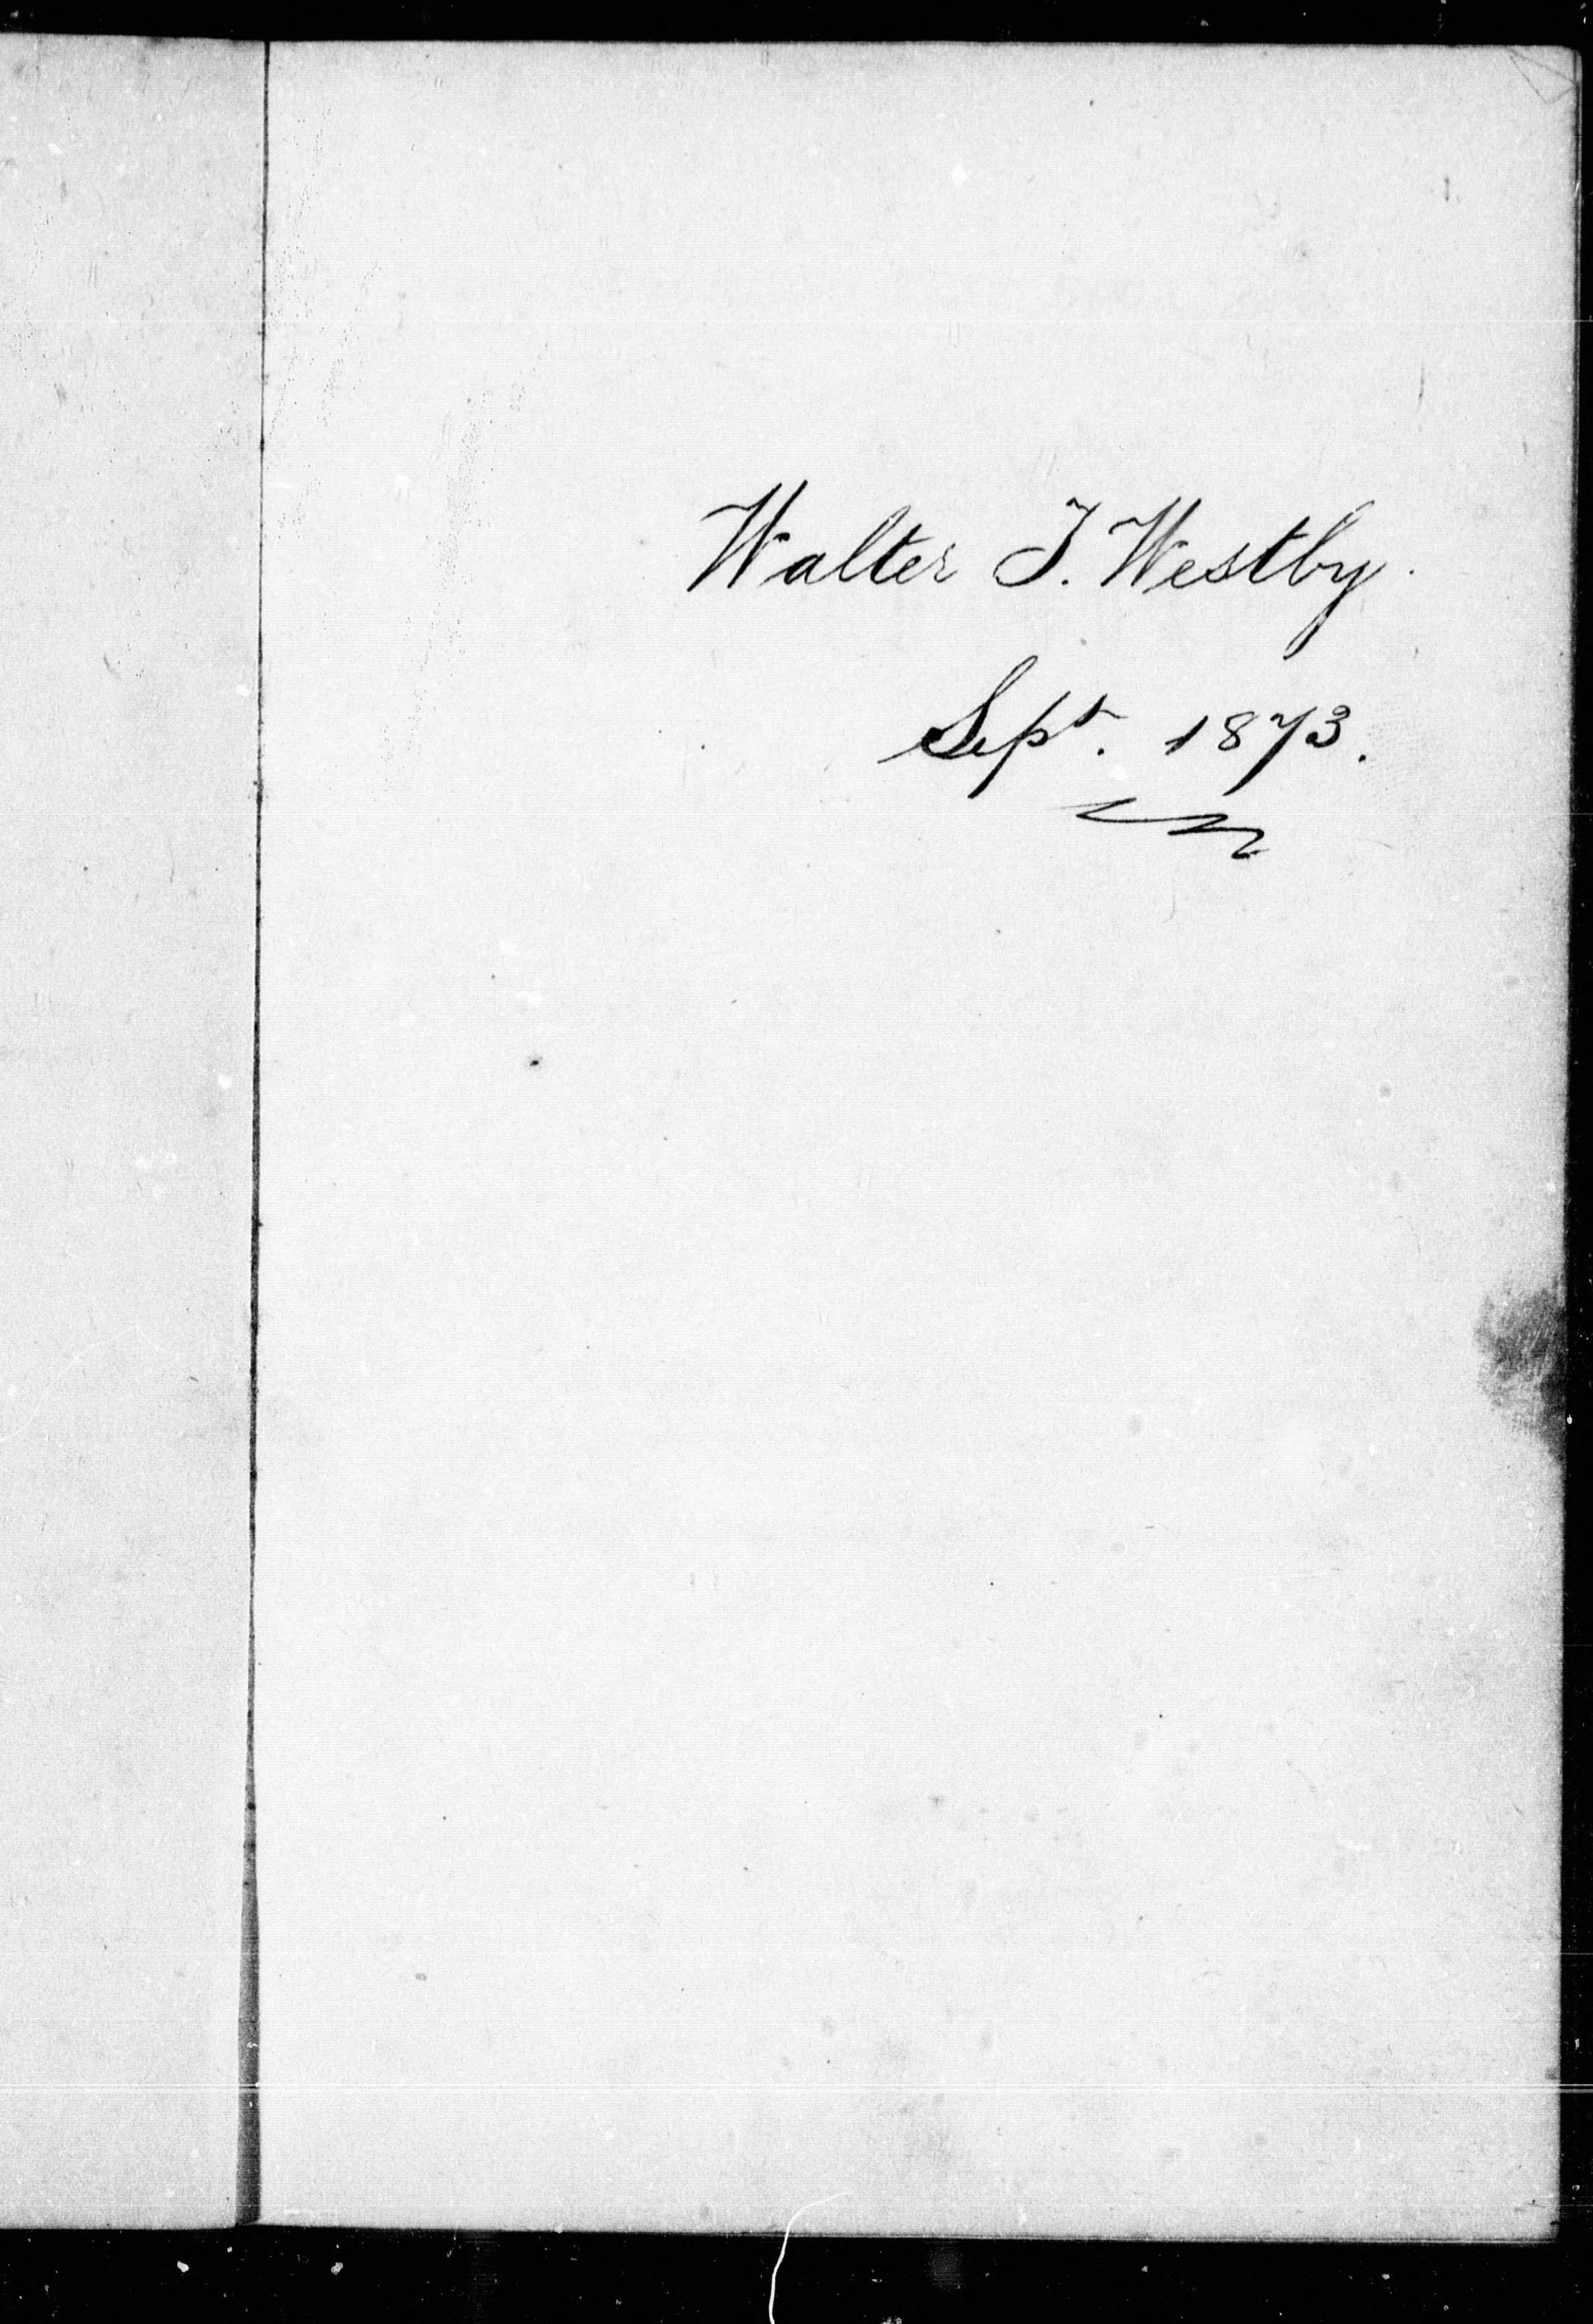 Walter T. Westby.
Sept. 1873.